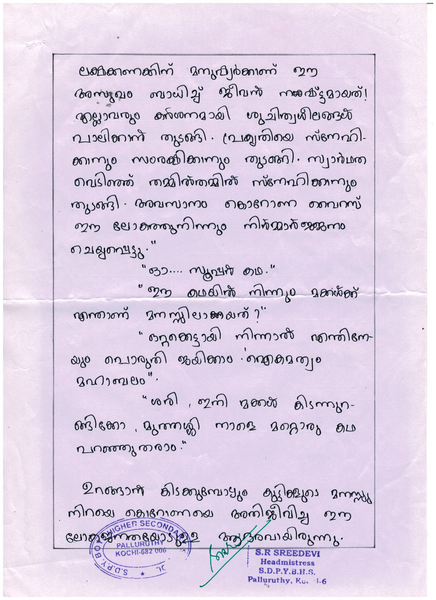 ലക്ഷക്കണക്കിന് മനുഷ്യർക്കാണ് ഈ
അസുഖം ബാധിച്ച് ജീവൻ നഷ്ട്ടമായത്!
എല്ലാവരും കർശനമായി ശുചിത്വശീലങ്ങൾ
പാലിക്കാൻ തുടങ്ങി. പ്രകൃതിയെ സ്നേഹി-
ക്കാനും സംരക്ഷിക്കാനും തുടങ്ങി. സ്വാർത്ഥത
വെടിഞ്ഞ് തമ്മിൽതമ്മിൽ സ്നേഹിക്കാനും
തുടങ്ങി. അവസാനം കൊറോണ വൈറസ്
ഈ ലോകത്തുനിന്നും നിർമ്മാർജ്ജനം
ചെയ്യപ്പെട്ടു."
"ഓ.... സൂപ്പർ കഥ."
"ഈ കഥയിൽ നിന്നും മക്കൾക്ക്
എന്താണ് മനസ്സിലാക്കിയത്?"
"ഒറ്റക്കെട്ടായി നിന്നാൽ എന്തിനേ-
യും പൊരുതി ജയിക്കാം. 'ഐകമത്യം
മഹാബലം".
"ശരി, ഇനി മക്കൾ കിടന്നുറ-
ങ്ങിക്കോ, മുത്തശ്ശി നാളെ മറ്റൊരു കഥ
പറഞ്ഞുതരാം."
ഉറങ്ങാൻ കിടക്കുമ്പോഴും കുട്ടികളുടെ മനസ്സു
നിറയെ കൊറോണയെ അതിജീവിച്ച ഈ
ലോകജനതയോടുള്ള ആദരവായിരുന്നു.
S.D.P.Y BOYS HIGHER SECONDARY
PALLURUTHY
KOCHI-682 006
S.R SREEDEVI
Headmistress
S.D.P.Y.B.H.S.
Palluruthy, Ko